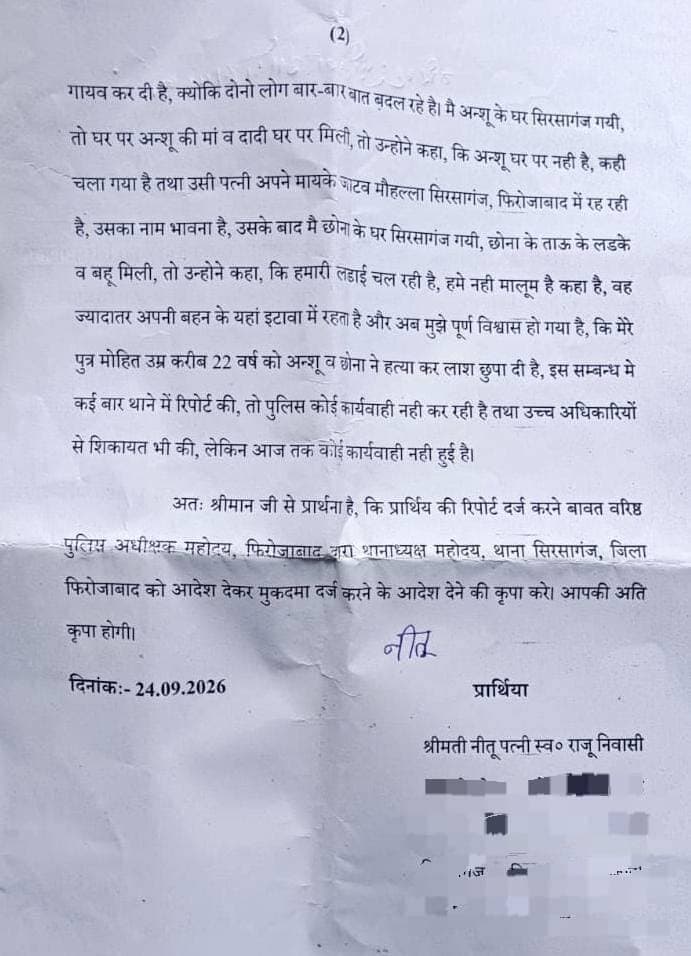 (2)
गायव कर दी है, क्योकि दोनो लोग बार-बार बात बदल रहे है। मै अन्शू के घर सिरसागंज गयी,
तो घर पर अन्शू की मां व दादी घर पर मिली, तो उन्होने कहा, कि अन्शू घर पर नही है, कही
चला गया है तथा उसी पत्नी अपने मायके जाटव मौहल्ला सिरसागंज, फिरोजाबाद में रह रही
है, उसका नाम भावना है, उसके बाद मै छोना के घर सिरसागंज गयी, छोना के ताऊ के लडके
व बहू मिली, तो उन्होने कहा, कि हमारी लडाई चल रही है, हमे नही मालूम है कहा है, वह
ज्यादातर अपनी बहन के यहां इटावा में रहता है और अब मुझे पूर्ण विश्वास हो गया है, कि मेरे
पुत्र मोहित उम्र करीब 22 वर्ष को अन्शू व छोना ने हत्या कर लाश छुपा दी है, इस सम्बन्ध मे
कई बार थाने में रिपोर्ट की, तो पुलिस कोई कार्यवाही नही कर रही है तथा उच्च अधिकारियों
से शिकायत भी की, लेकिन आज तक कोई कार्यवाही नही हुई है।
अतः श्रीमान जी से प्रार्थना है, कि प्रार्थिय की रिपोर्ट दर्ज करने बावत वरिष्ठ
पुलिस अधीक्षक महोदय, फिरोजाबाद द्वारा थानाध्यक्ष महोदय, थाना सिरसागंज, जिला
फिरोजाबाद को आदेश देकर मुकदमा दर्ज करने के आदेश देने की कृपा करे। आपकी अति
कृपा होगी।
नीतू
दिनांक:- 24.09.2026
प्रार्थिया
श्रीमती नीतू पत्नी स्व० राजू निवासी